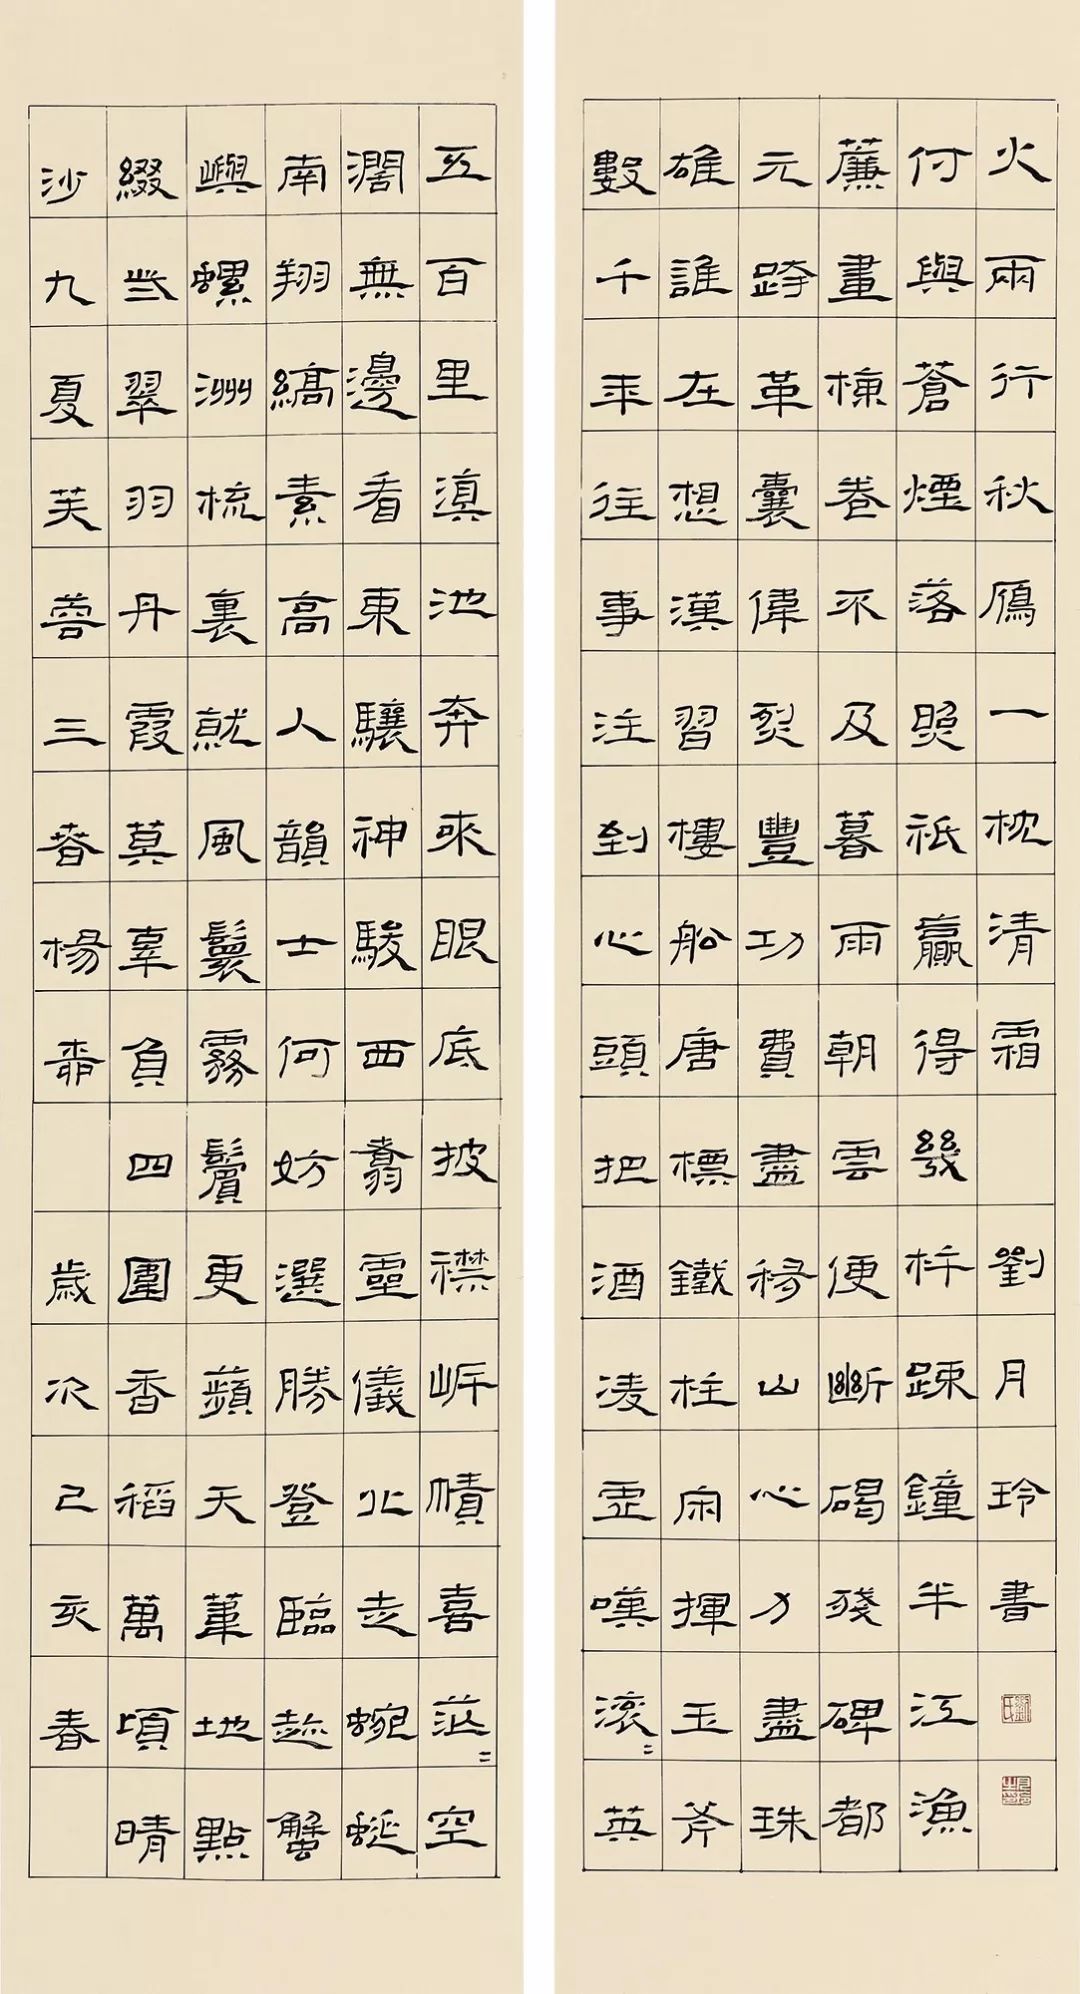 五百里滇池奔來眼底披襟岸幘喜茫〻空
闊無邊看東驤神駿西翥靈儀北走蜿蜒
南翔縞素高人韻士何妨選勝登臨趁蟹
嶼螺洲梳裹就風鬟霧鬢更蘋天葦地點
綴些翠羽丹霞莫辜負四圍香稻萬頃晴
沙九夏芙蓉三春楊柳 歲次己亥春
數千年往事注到心頭把酒凌虛嘆滾〻英
雄誰在想漢習樓船唐標鐵柱宋揮玉斧
元跨革囊偉烈豐功費盡移山心力盡珠
薕畫棟卷不及暮雨朝雲便斷碣殘碑都
付與蒼煙落照祇贏得幾杵踈鐘半江漁
火兩行秋鴈一枕清霜 劉月玲書
劉氏